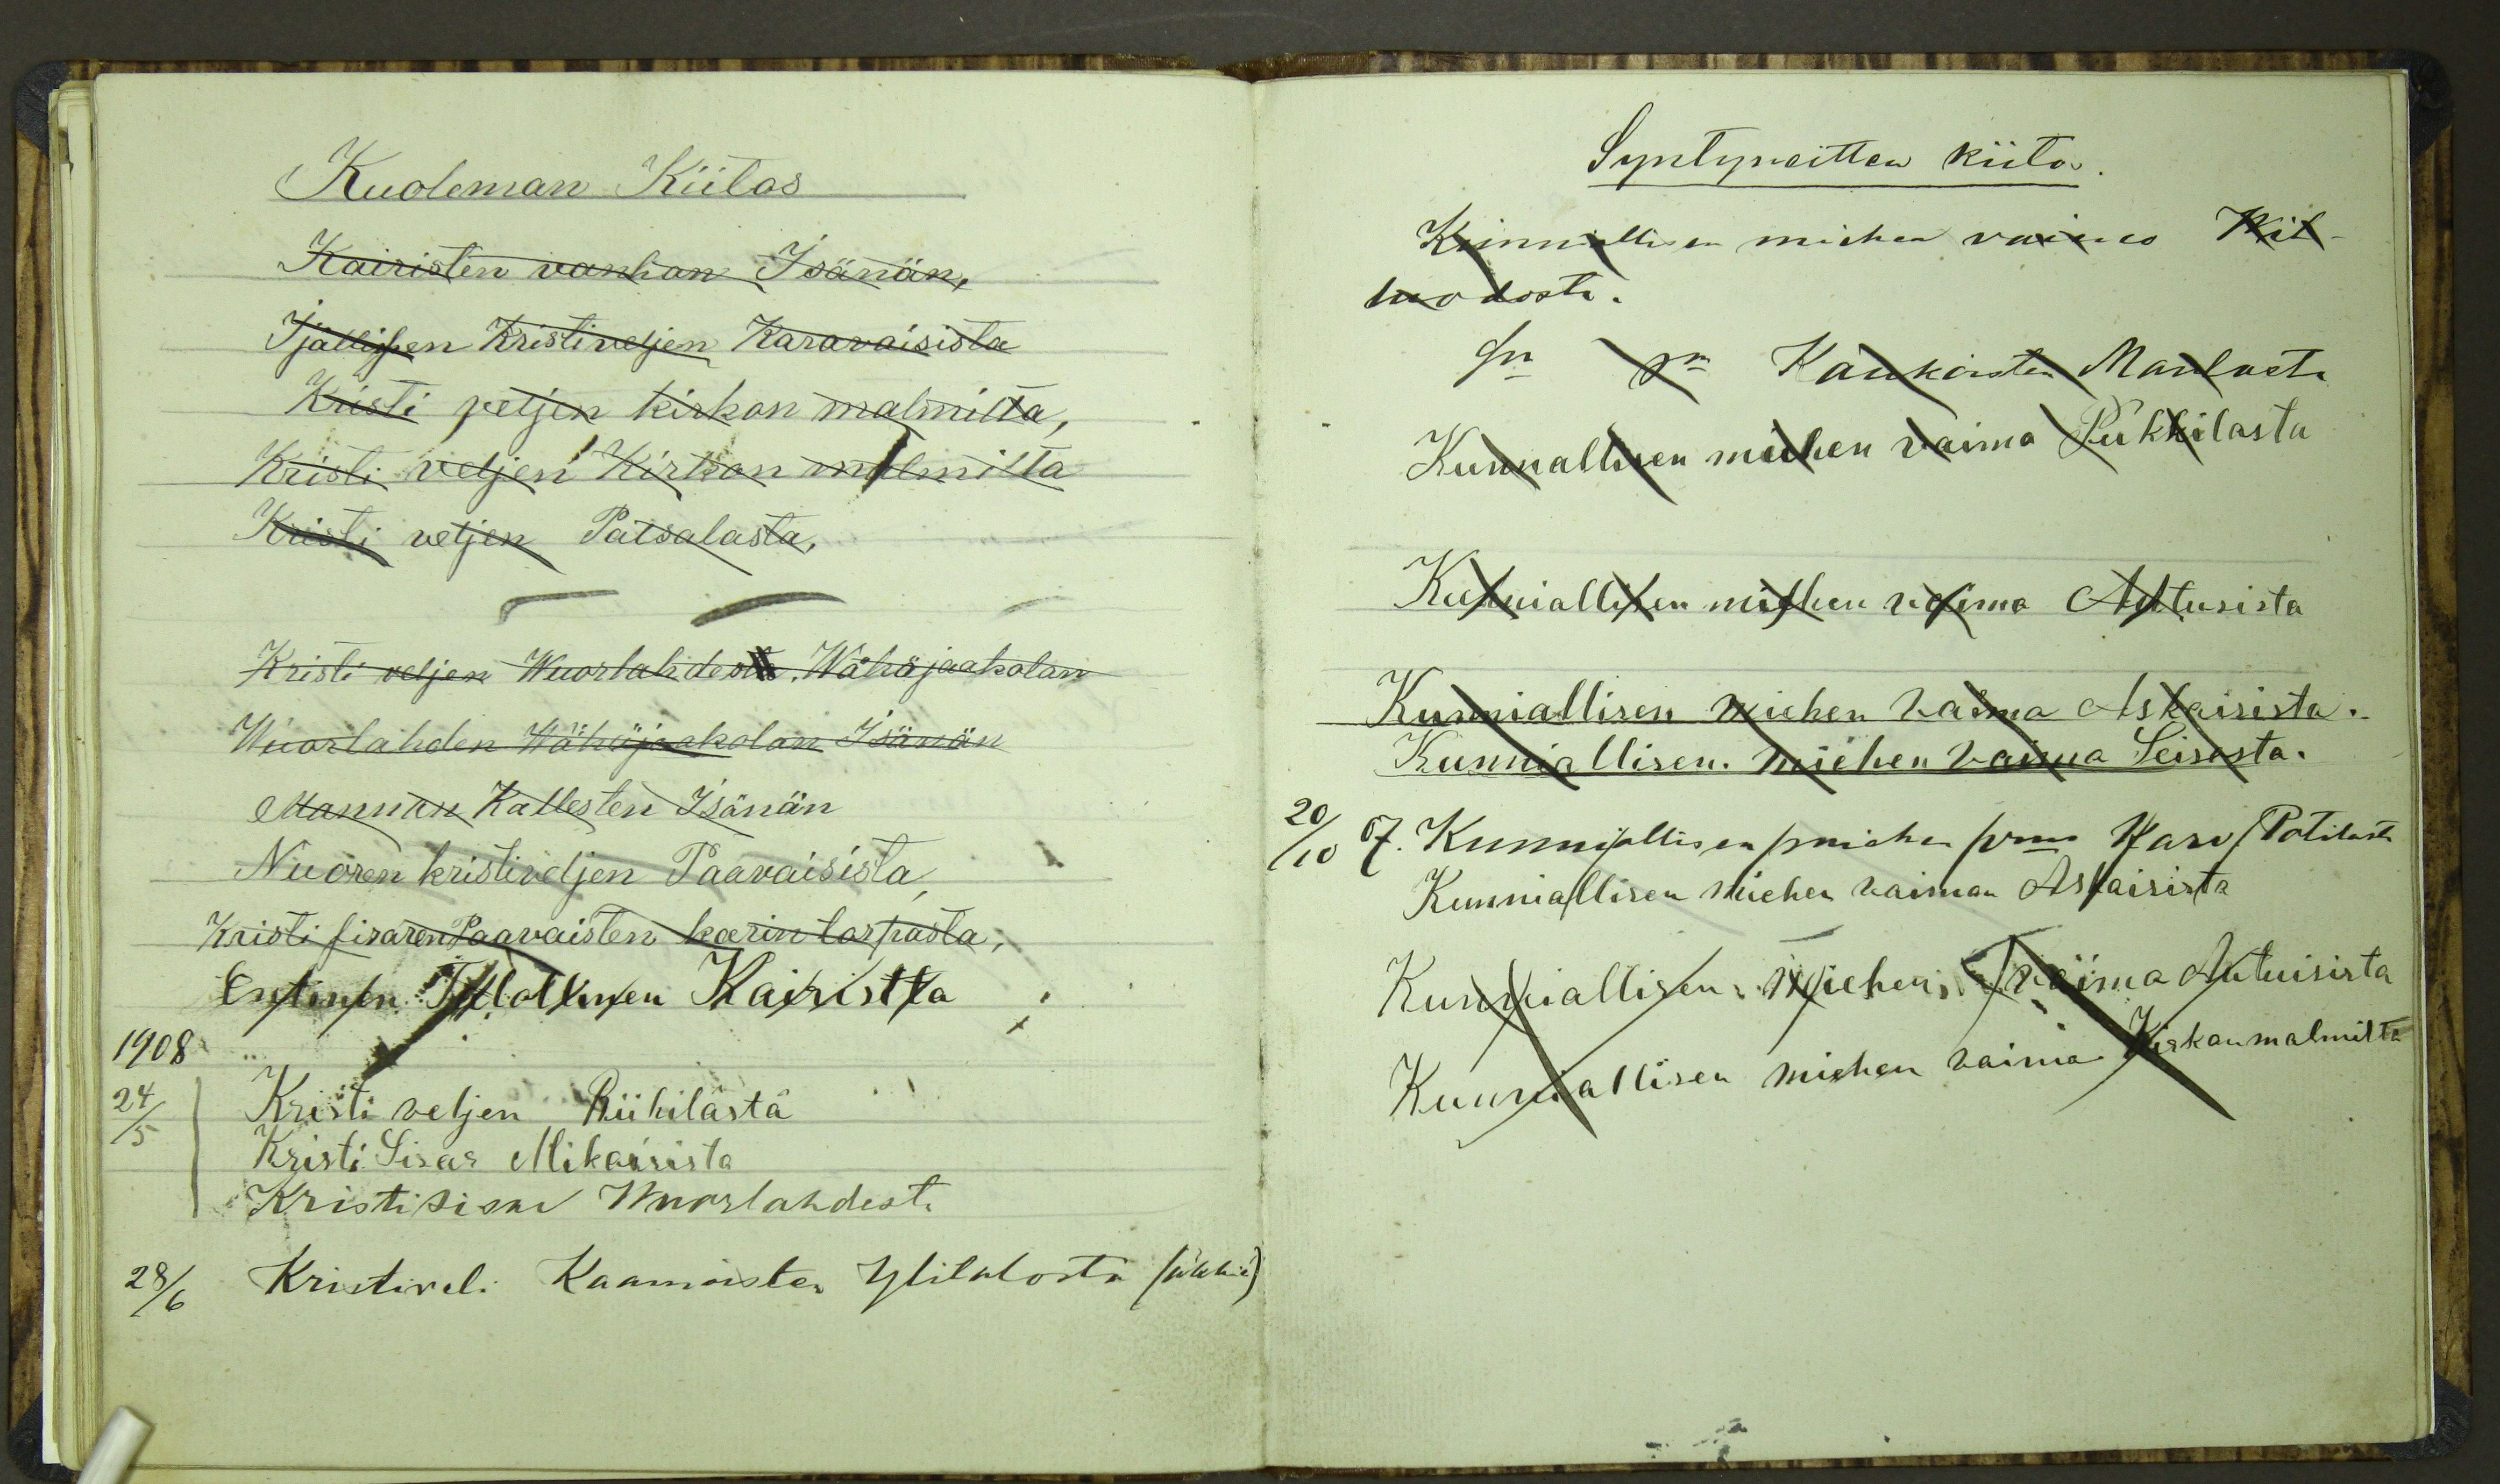 Kuoleman Kiitos
Kairisten vanhan Isänän,
Ijällisen Kristiveljen Karavaisista
Kristi veljen kirkon malmilta,
Kristi veljen Kirkon malmilta
Kristi veljen Patsalasta,
Kristi veljen Wuorlahdesta. Wähäjaakolan
Wuorlahden Wähäjaakolan Isänän
Mannun Kallesten Isänän
Nuoren kristiveljen Paavaisista,
Kristi sisaren Paavaisten karin torpasta,
Entinen Talollinen Kairistta
1908
24/5 Kristi veljen Riihilästä
Kristi Sisar Mikaisista
Kristi sisar Wuorlahdest.
28/6 Kristivel. Kaamaisten Ylitalosta
Syntyneitten kiitos.
Kunniallisen miehen vaimo Kil-
luodosta.
Sn sn Kaukoisten Manlasta
Kunnallisen miehen vaimo Pukkilasta
Kunniallisen miehen vaimo Autusista
Kunniallisen miehen vaimo Askaisista.
Kunniallisen. miehen vaimo Seisosta.
20/10 07. Kunniallisen miehen vmo Karv Potilasta
Kunniallisen miehen vaiman Askaisista
Kunniallisen miehen vaimo Autuisista
Kunniallisen miehen vaimo Kirkonmalmilta